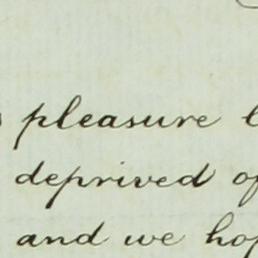 pleasure
deprived of
and we hop